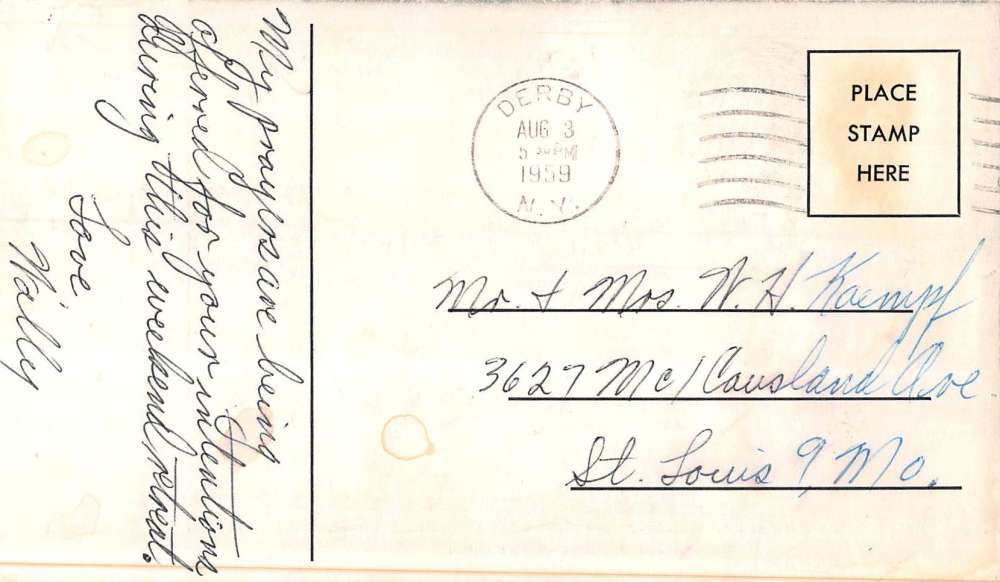 My prayers are being
offered for your intentions
during this weekend retreat.
Love
Wally
DERBY
AUG 3
5 PM
1959
N.Y.
PLACE
STAMP
HERE
Mr. + Mrs. W. H. Kaempf
3627 McCausland Ave.
St. Louis 9, Mo.